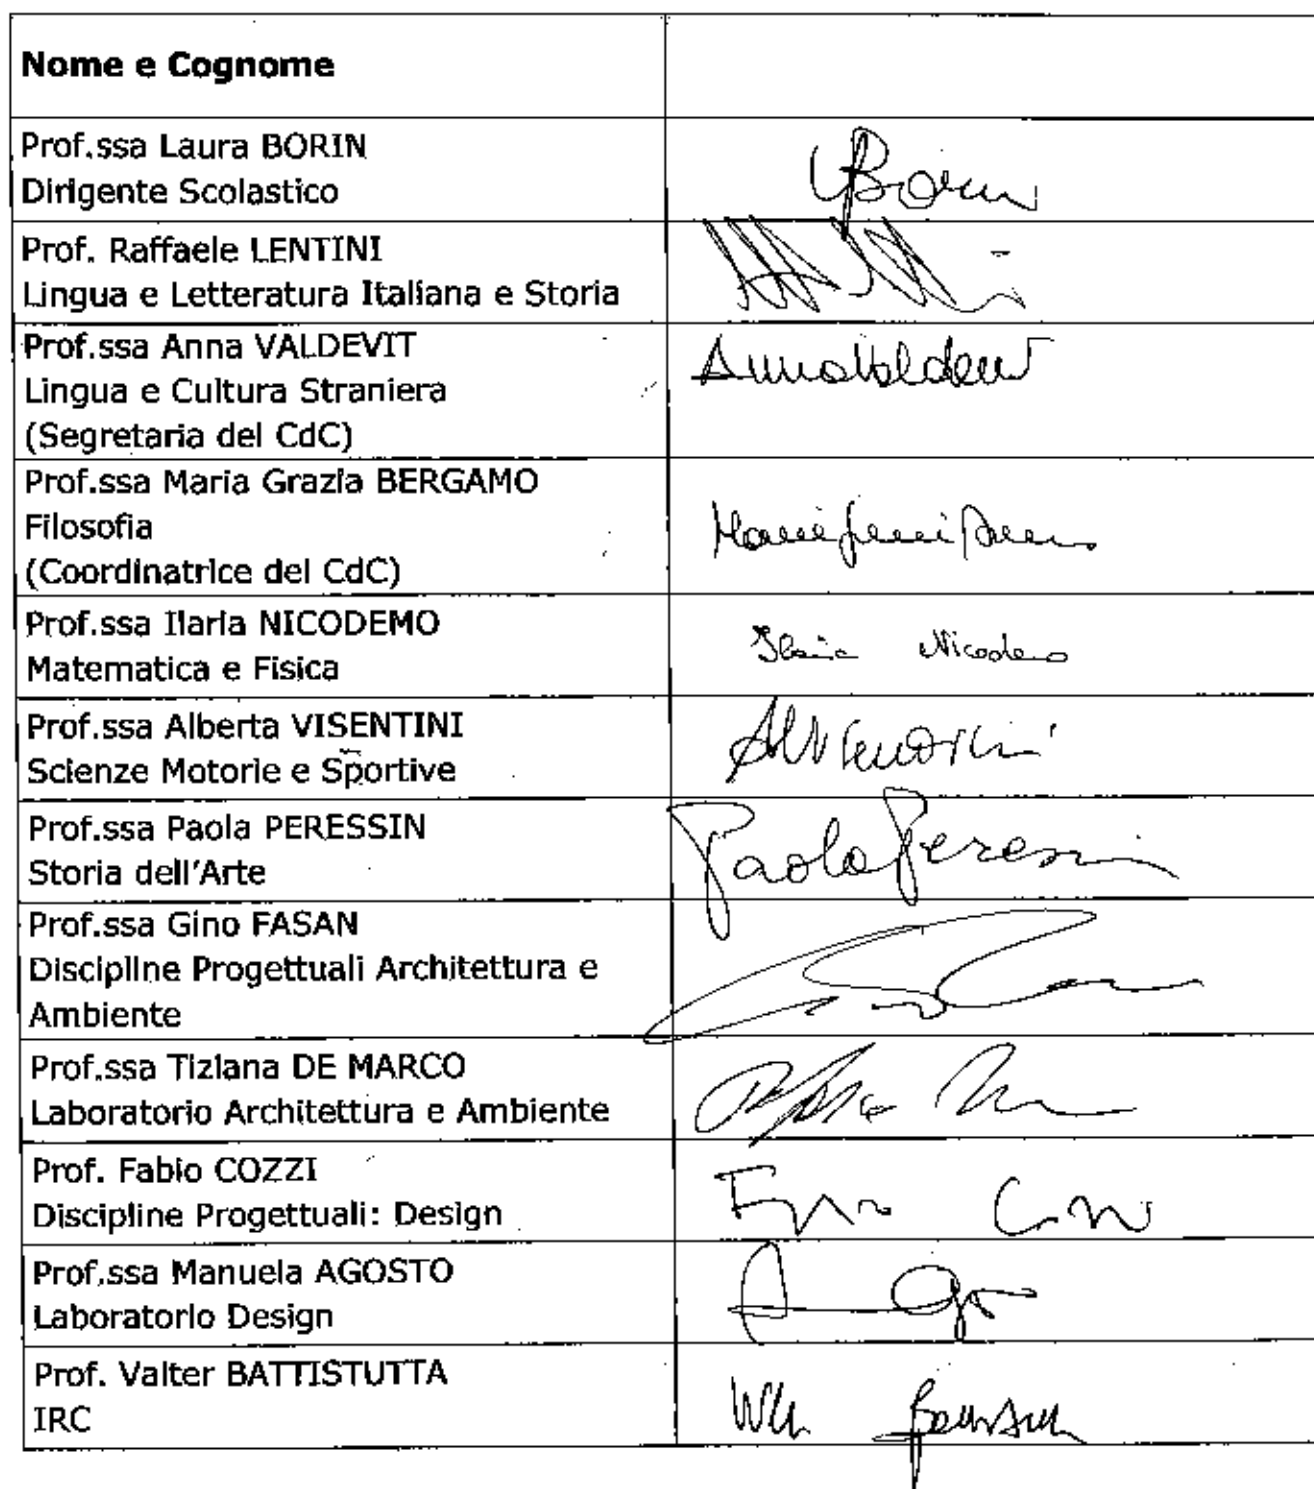 Nome e Cognome
Prof.ssa Laura BORIN
Dirigente Scolastico
Borin
Prof. Raffaele LENTINI
Lingua e Letteratura Italiana e Storia
Prof.ssa Anna VALDEVIT
Lingua e Cultura Straniera
(Segretaria del CdC)
Anna Valdevit
Prof.ssa Maria Grazia BERGAMO
Filosofia
(Coordinatrice del CdC)
Prof.ssa Ilaria NICODEMO
Matematica e Fisica
Ilaria Nicodemo
Prof.ssa Alberta VISENTINI
Scienze Motorie e Sportive
Prof.ssa Paola PERESSIN
Storia dell'Arte
Paola Peressin
Prof.ssa Gino FASAN
Discipline Progettuali Architettura e
Ambiente
Prof.ssa Tiziana DE MARCO
Laboratorio Architettura e Ambiente
Prof. Fabio COZZI
Discipline Progettuali: Design
Prof.ssa Manuela AGOSTO
Laboratorio Design
Prof. Valter BATTISTUTTA
IRC